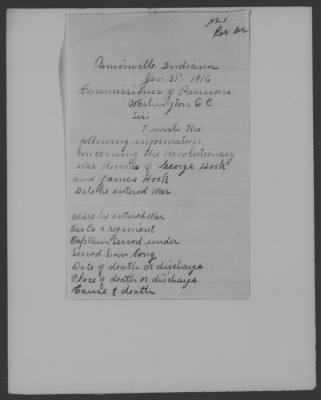 Rev Wr
Unionville Indiana
Jan 31" 1916
Commissioner of Pensions
Washington D.C.
Sir:
I wish the
following information
concerning the Revolutionary
War Records of George Hook
and James Hook
Date he entered War
Where he entered War
His Co & regiment
Captain served under
Served how long
Date of death or discharge
Place of death or discharge
Cause of death